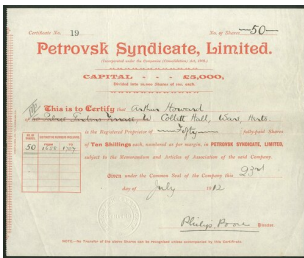 Certificate No. 19 No. of Shares —50—
Petrovsk Syndicate, Limited.
CAPITAL - - - £5,000,
This is to Certify that Arthur Howard
Collett Hall, Ware, Herts
is the Registered Proprietor of Fifty fully-paid Shares
of Ten Shillings each, numbered as per margin, in PETROVSK SYNDICATE, LIMITED,
subject to the Memorandum and Articles of Association of the said Company.
50
Given under the Common Seal of the Company this 23rd
day of July 1912
Philip Poore
NOTE.—No Transfer of the above Shares can be recognised unless accompanied by this Certificate.